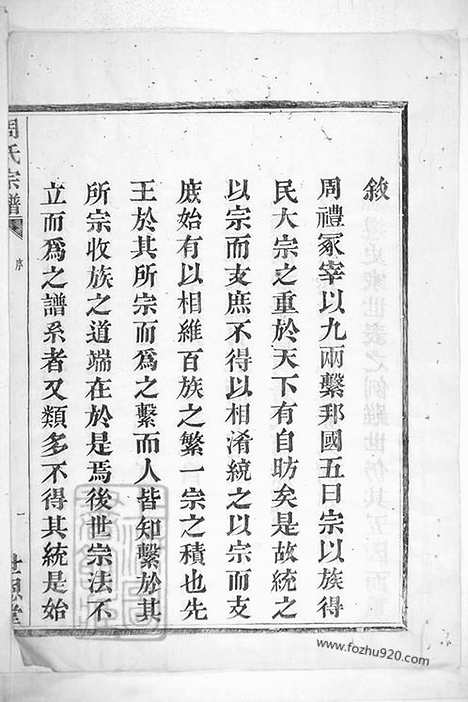 敘
周禮冢宰以九兩繫邦國五曰宗以族得
民大宗之重於天下有自昉矣是故統之
以宗而支庶不得以相淆統之以宗而支
庶始有以相維百族之繁一宗之積也先
王於其所宗而爲之繫而人皆知繫於其
所宗收族之道端在於是焉後世宗法不
立而爲之譜系者又類多不得其統是始
周氏宗譜
序
一
世恩堂
www.fozhu920.com